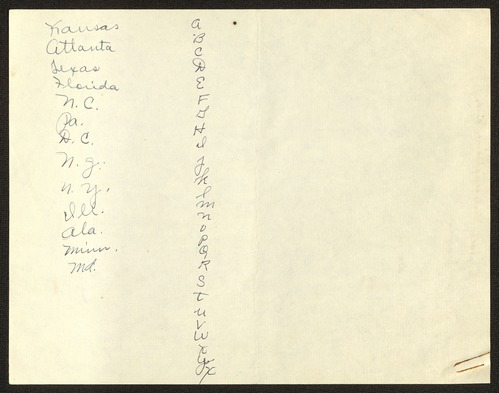 Kansas
Atlanta
Texas
Florida
N.C.
Pa.
D.C.
N.J.
N.Y.
Ill.
Ala.
Minn.
Md.
A
B
C
D
E
F
G
H
I
J
K
L
M
N
O
P
Q
R
S
T
U
V
W
X
Y